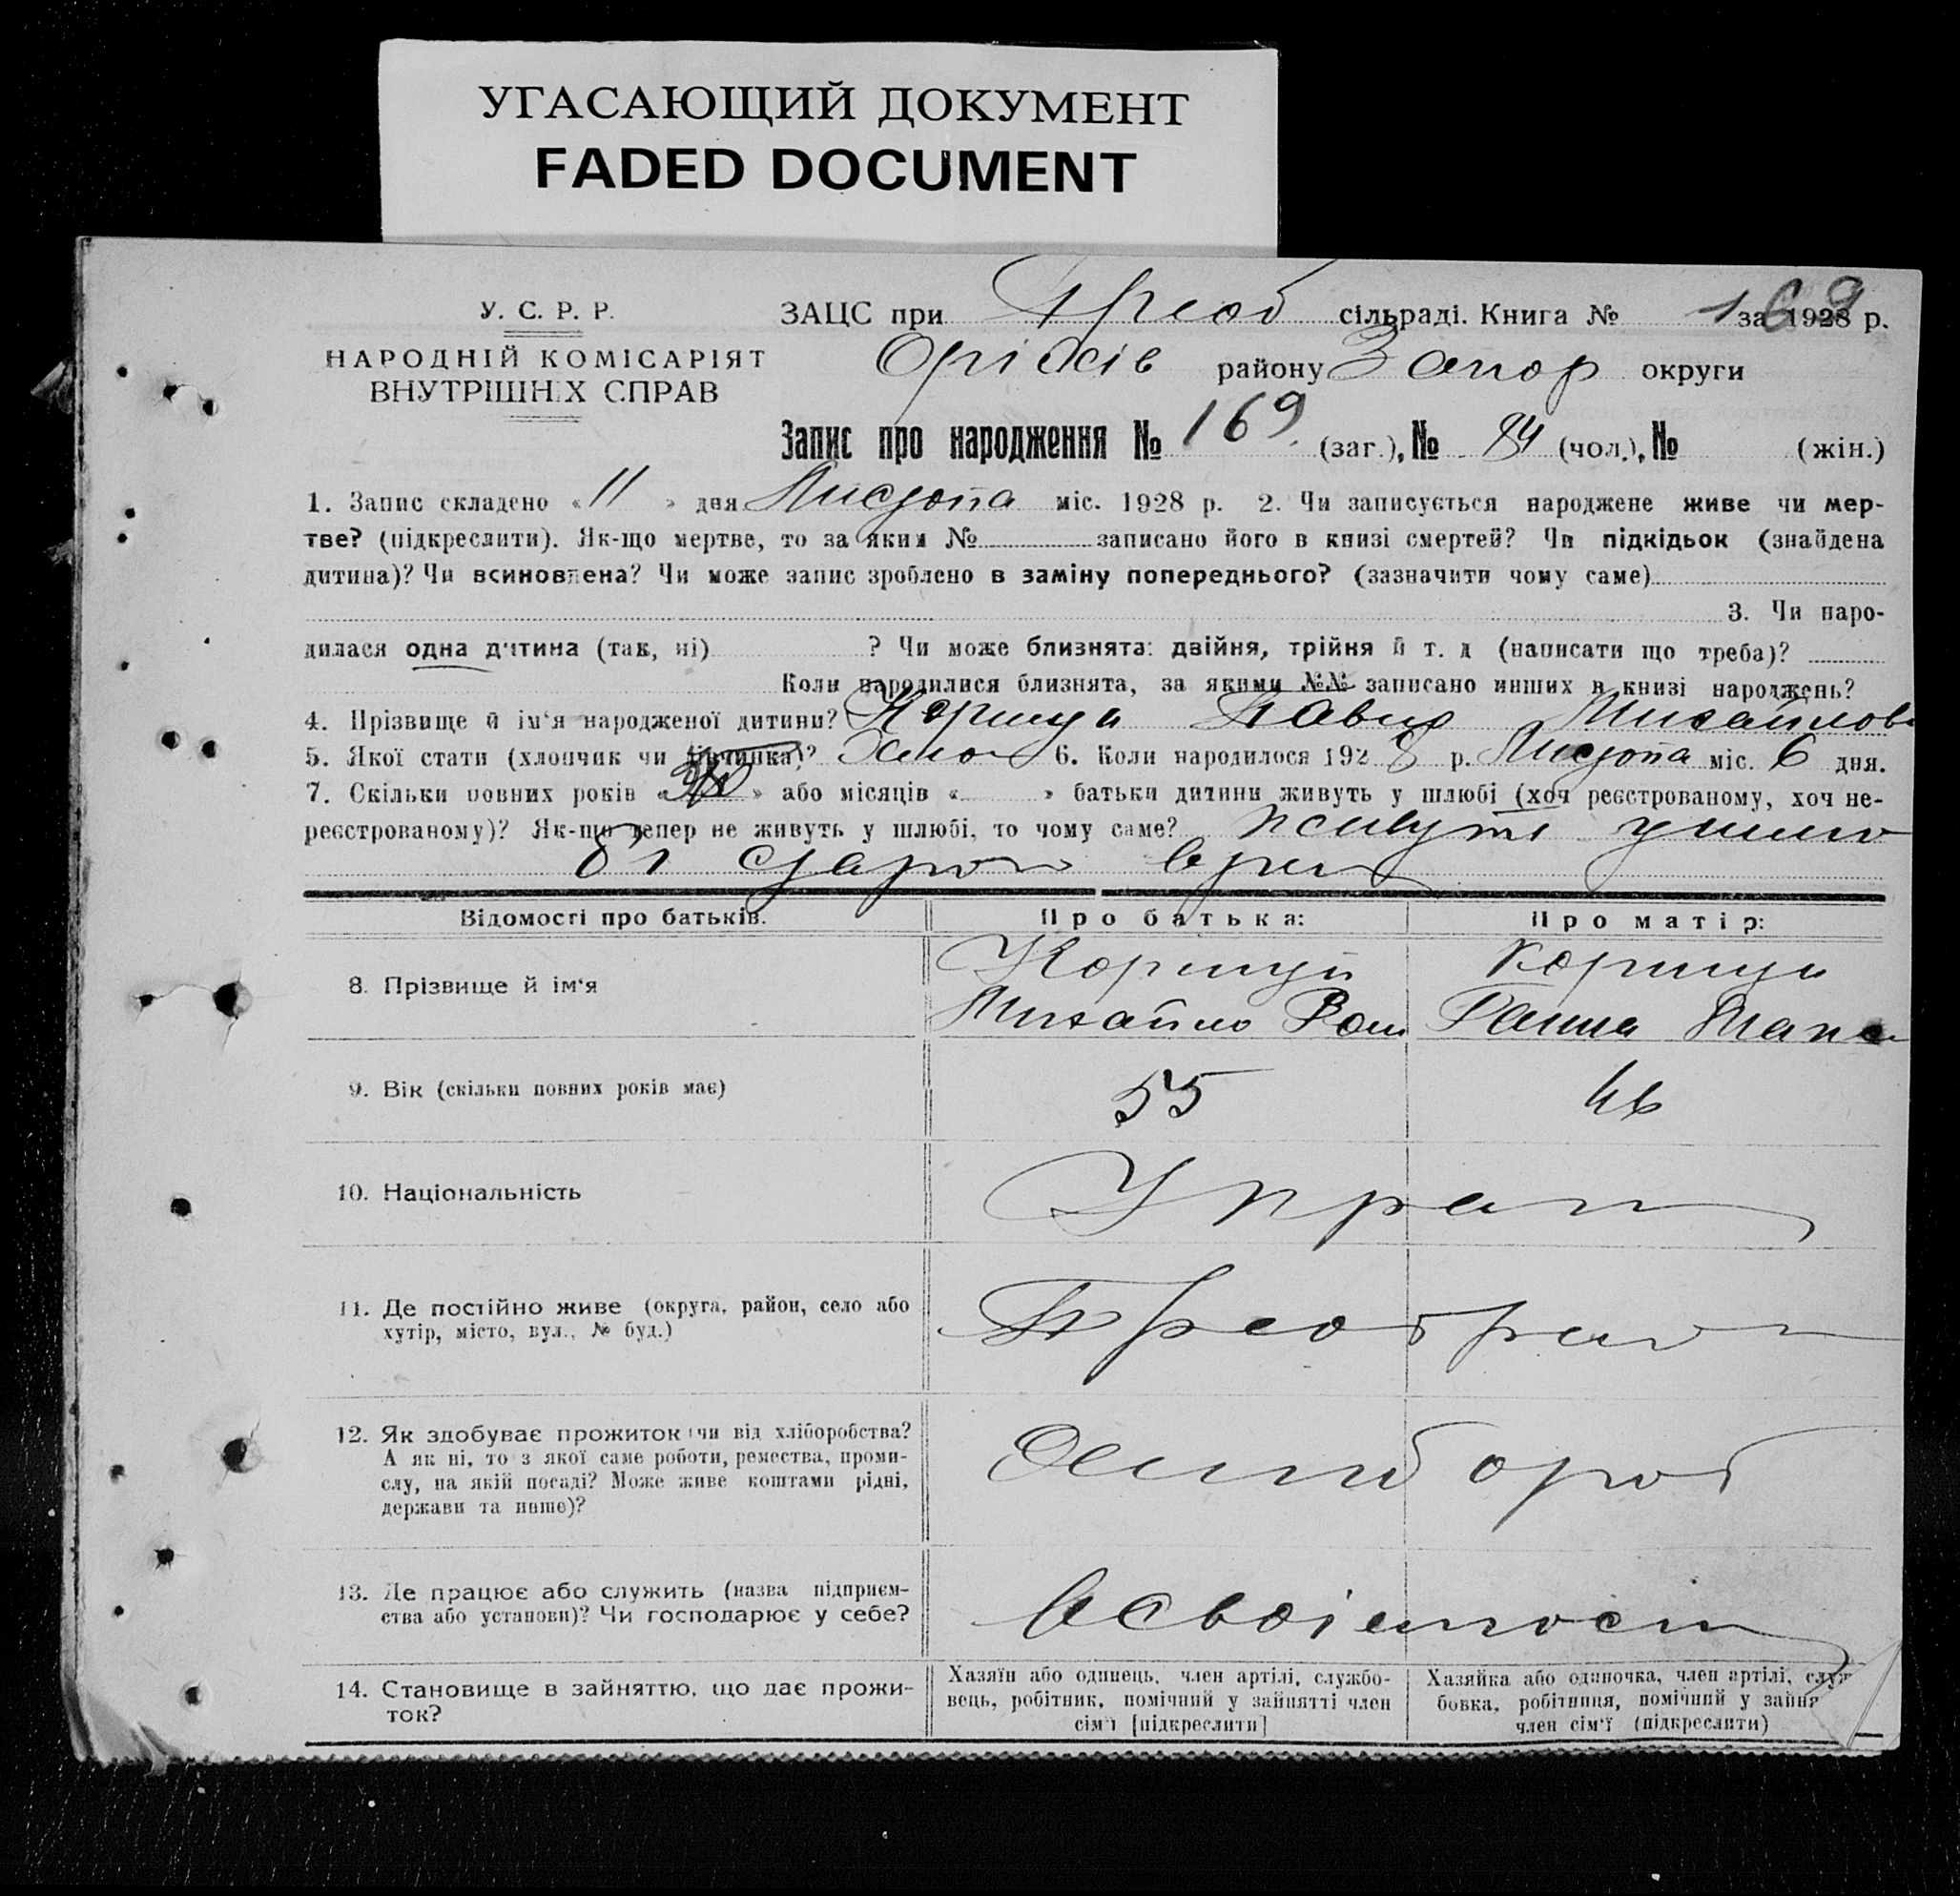 УГАСАЮЩИЙ ДОКУМЕНТ
FADED DOCUMENT
У. С. Р. Р.
НАРОДНІЙ КОМІСАРІЯТ
ВНУТРІШНІХ СПРАВ
ЗАЦС при Преоб сільраді. Книга № 1 за 1928 р.
169
Оріхів району Запор округи
Запис про народження № 169. (заг.), № 84 (чол.), № (жін.)
1. Запис складено « 11 » дня Листопа міс. 1928 р. 2. Чи записується народжене живе чи мер-
тве? (підкреслити). Як-що мертве, то за яким № записано його в книзі смертей? Чи підкідьок (знайдена
дитина)? Чи всиновлена? Чи може запис зроблено в заміну попереднього? (зазначити чому саме)
3. Чи наро-
дилася одна дитина (так, ні) ? Чи може близнята: двійня, трійня й т. д (написати що треба)?
Коли народилися близнята, за якими №№ записано инших в книзі народжень?
4. Прізвище й ім'я народженої дитини? Коршун Павло Михайлов
5. Якої стати (хлопчик чи дівчинка)? 6. Коли народилося 1928 р. Листопа міс. 6 дня.
7. Скільки повних років « » або місяців « » батьки дитини живуть у шлюбі (хоч реєстрованому, хоч не-
реєстрованому)? Як-що тепер не живуть у шлюбі, то чому саме? живуть ушлю
бі
Відомості про батьків.
Про батька:
Про матір:
8. Прізвище й ім'я
Коршун
Михайло Ром
Коршун
Ганна
9. Вік (скільки повних років має)
55
46
10. Національність
Украи
11. Де постійно живе (округа, район, село або
хутір, місто, вул., № буд.)
Преображ
12. Як здобуває прожиток: чи від хліборобства?
А як ні, то з якої саме роботи, ремества, проми-
слу, на якій посаді? Може живе коштами рідні,
держави та инше)?
Хлибороб
13. Де працює або служить (назва підприєм-
ства або установи)? Чи господарює у себе?
14. Становище в зайняттю, що дає прожи-
ток?
Хазяїн або одинець, член артілі, службо-
вець, робітник, помічний у зайнятті член
сім'ї [підкреслити]
Хазяйка або одиночка, член артілі, служ
бовка, робітниця, помічний у зайня
член сім'ї (підкреслити)